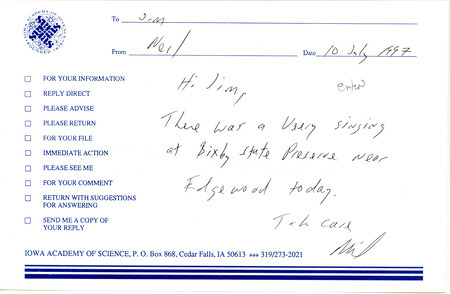 IOWA ACADEMY OF SCIENCE
To Jim
From Neil Date 10 July 1997
FOR YOUR INFORMATION
REPLY DIRECT
PLEASE ADVISE
PLEASE RETURN
FOR YOUR FILE
IMMEDIATE ACTION
PLEASE SEE ME
FOR YOUR COMMENT
RETURN WITH SUGGESTIONS
FOR ANSWERING
SEND ME A COPY OF
YOUR REPLY
Hi Jim,
There was a Veery singing
at Bixby State Preserve near
Edgewood today.
Take care
Neil
IOWA ACADEMY OF SCIENCE, P. O. Box 868, Cedar Falls, IA 50613 *** 319/273-2021